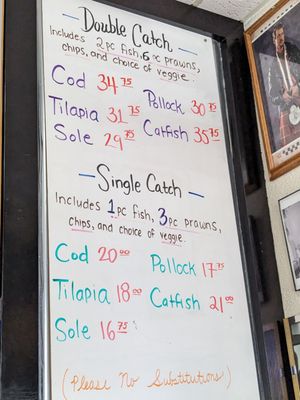 Double Catch
Includes 2pc fish, 6pc prawns,
chips, and choice of veggie.
Cod 34 75
Pollock 30 75
Tilapia 31 75
Catfish 35 75
Sole 29 75
Single Catch
Includes 1pc fish, 3pc prawns,
chips, and choice of veggie.
Cod 20 00
Pollock 17 75
Tilapia 18 00
Catfish 21 00
Sole 16 75
(Please No Substitutions)